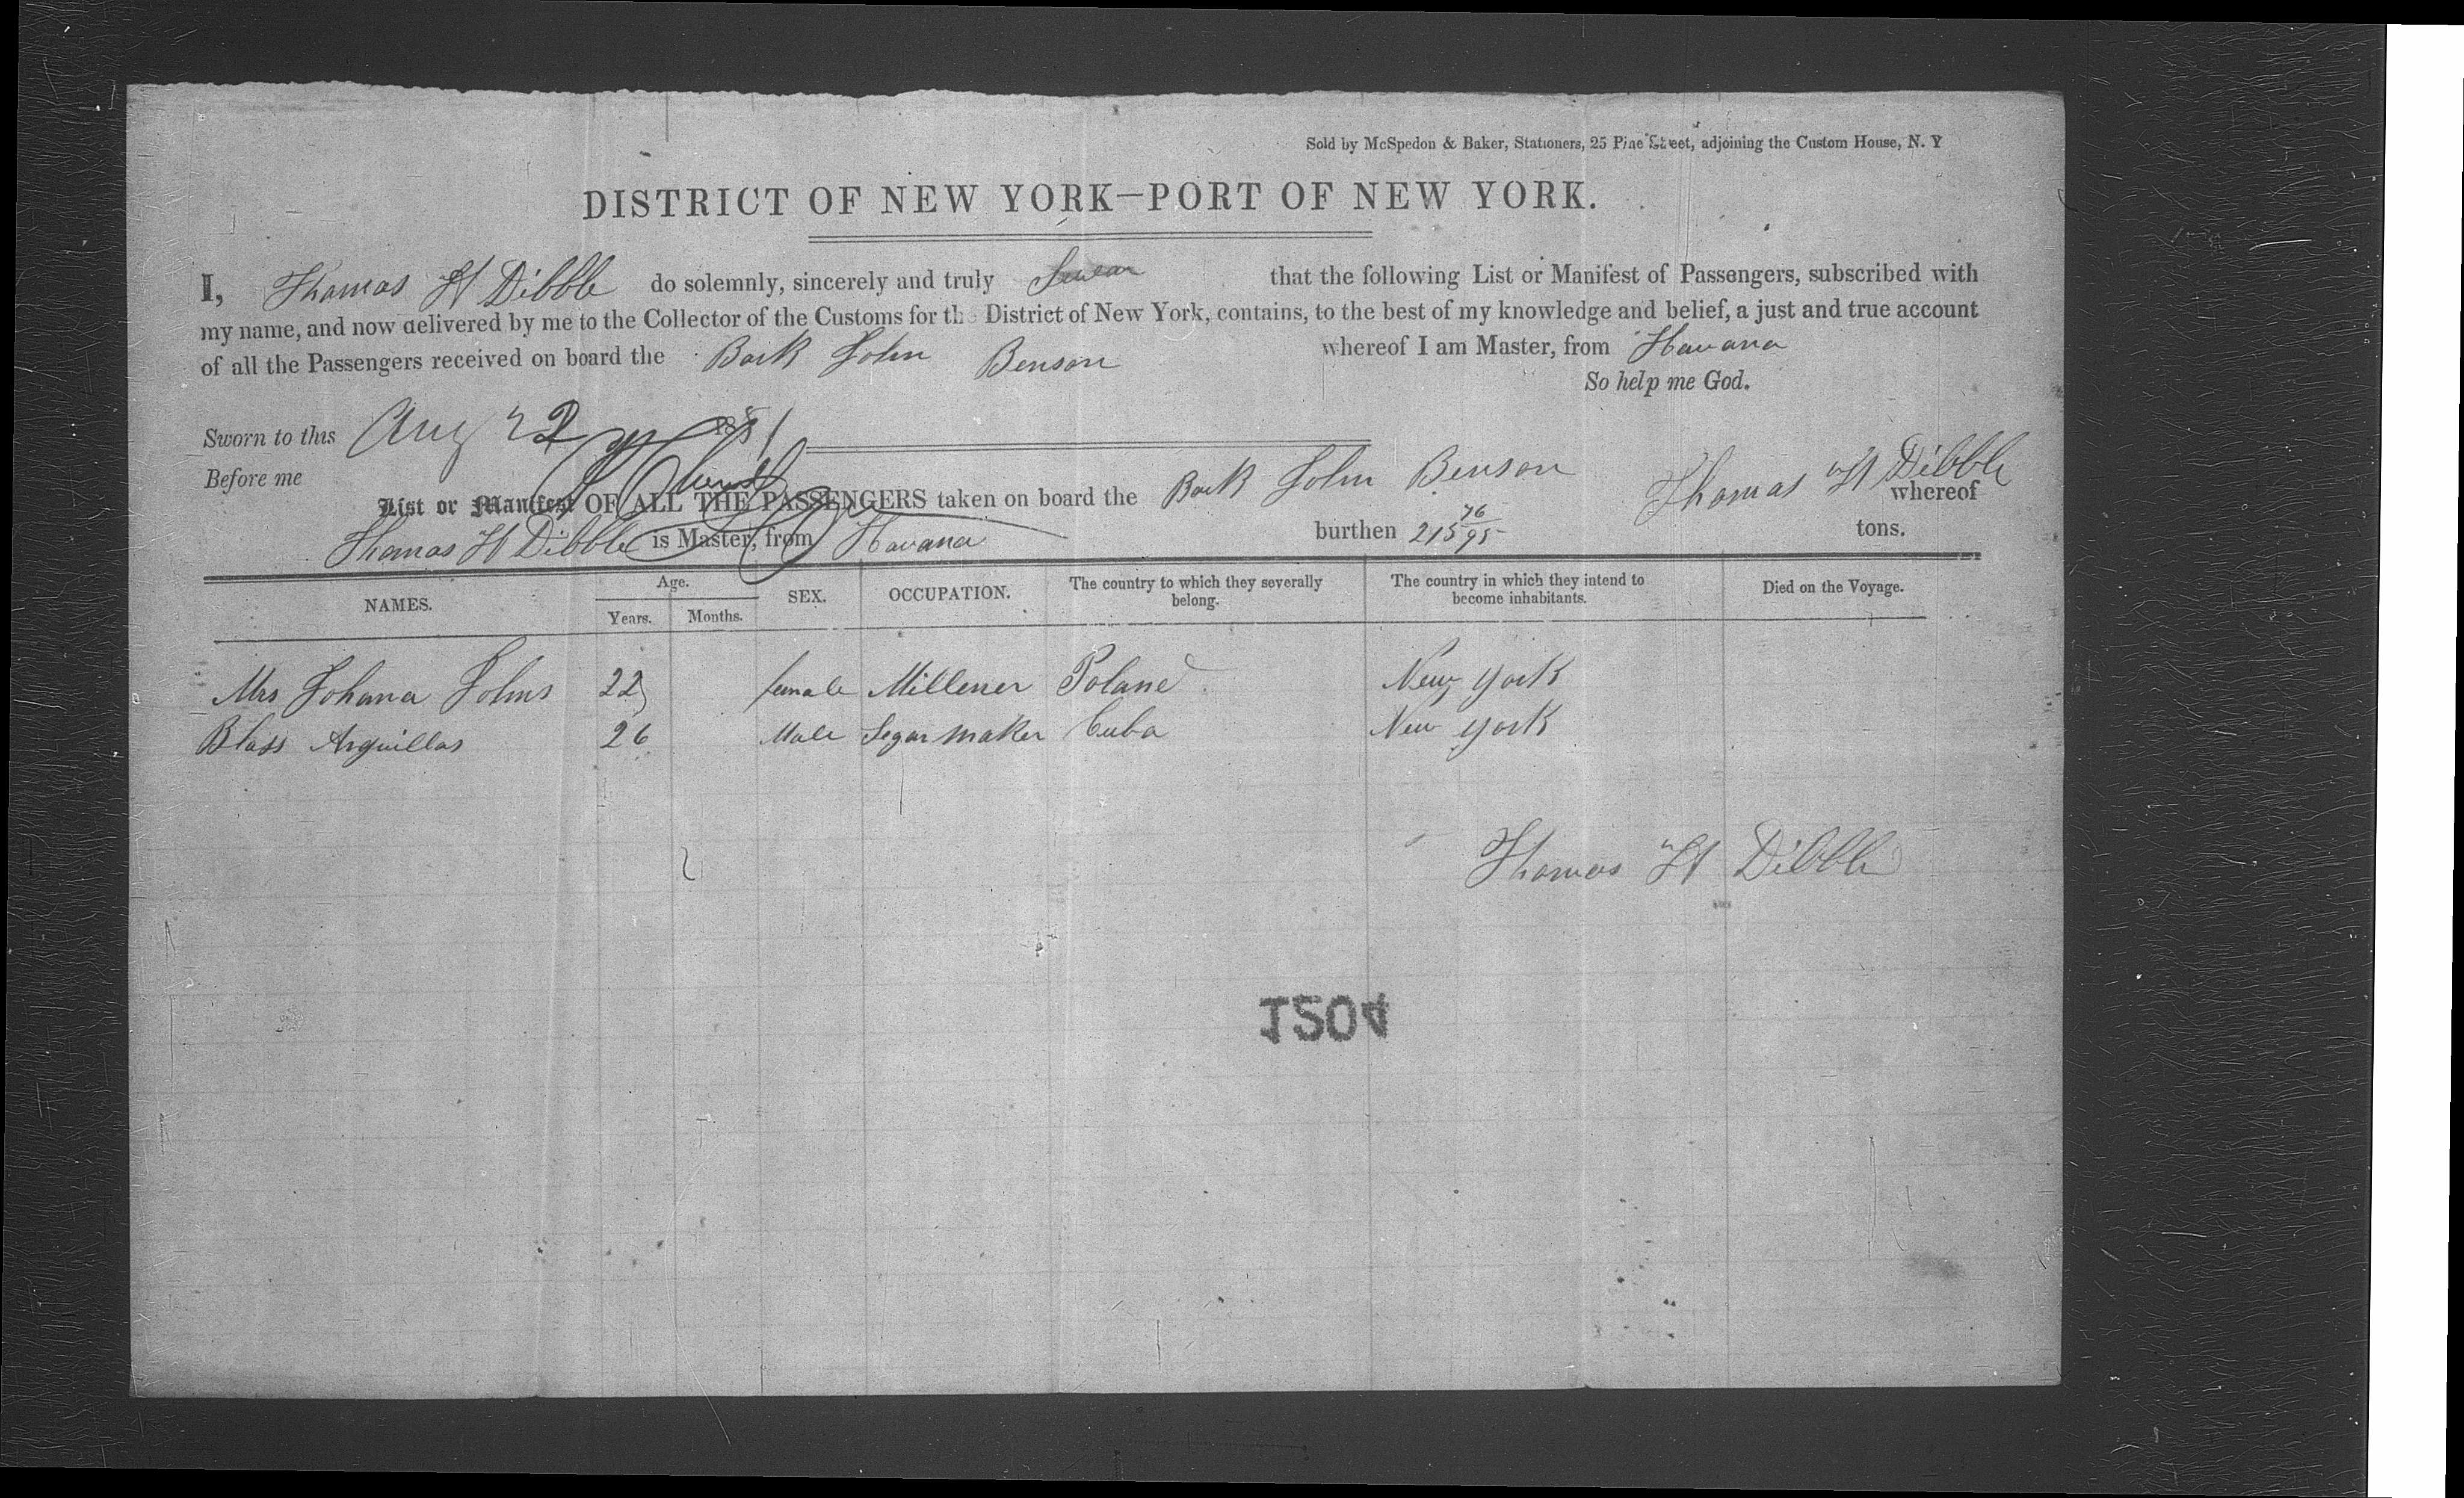 Sold by McSpedon & Baker, Stationers, 25 Pine Street, adjoining the Custom House, N. Y
DISTRICT OF NEW YORK—PORT OF NEW YORK.
I, Thomas H Dibble do solemnly, sincerely and truly Swear that the following List or Manifest of Passengers, subscribed with
my name, and now delivered by me to the Collector of the Customs for the District of New York, contains, to the best of my knowledge and belief, a just and true account
of all the Passengers received on board the Bark John Benson whereof I am Master, from Havana
So help me God.
Sworn to this Aug 22 1851
Before me Thomas H Dibble
List or Manifest OF ALL THE PASSENGERS taken on board the Bark John Benson whereof
Thomas H Dibble is Master, from Havana burthen 215 76/95 tons.
NAMES. Age. Years. Months. SEX. OCCUPATION. The country to which they severally belong. The country in which they intend to become inhabitants. Died on the Voyage.
Mrs Johana Johns 22 female Millener Poland New York
Blass Arguillas 26 Male Segar maker Cuba New York
Thomas H Dibble
1504